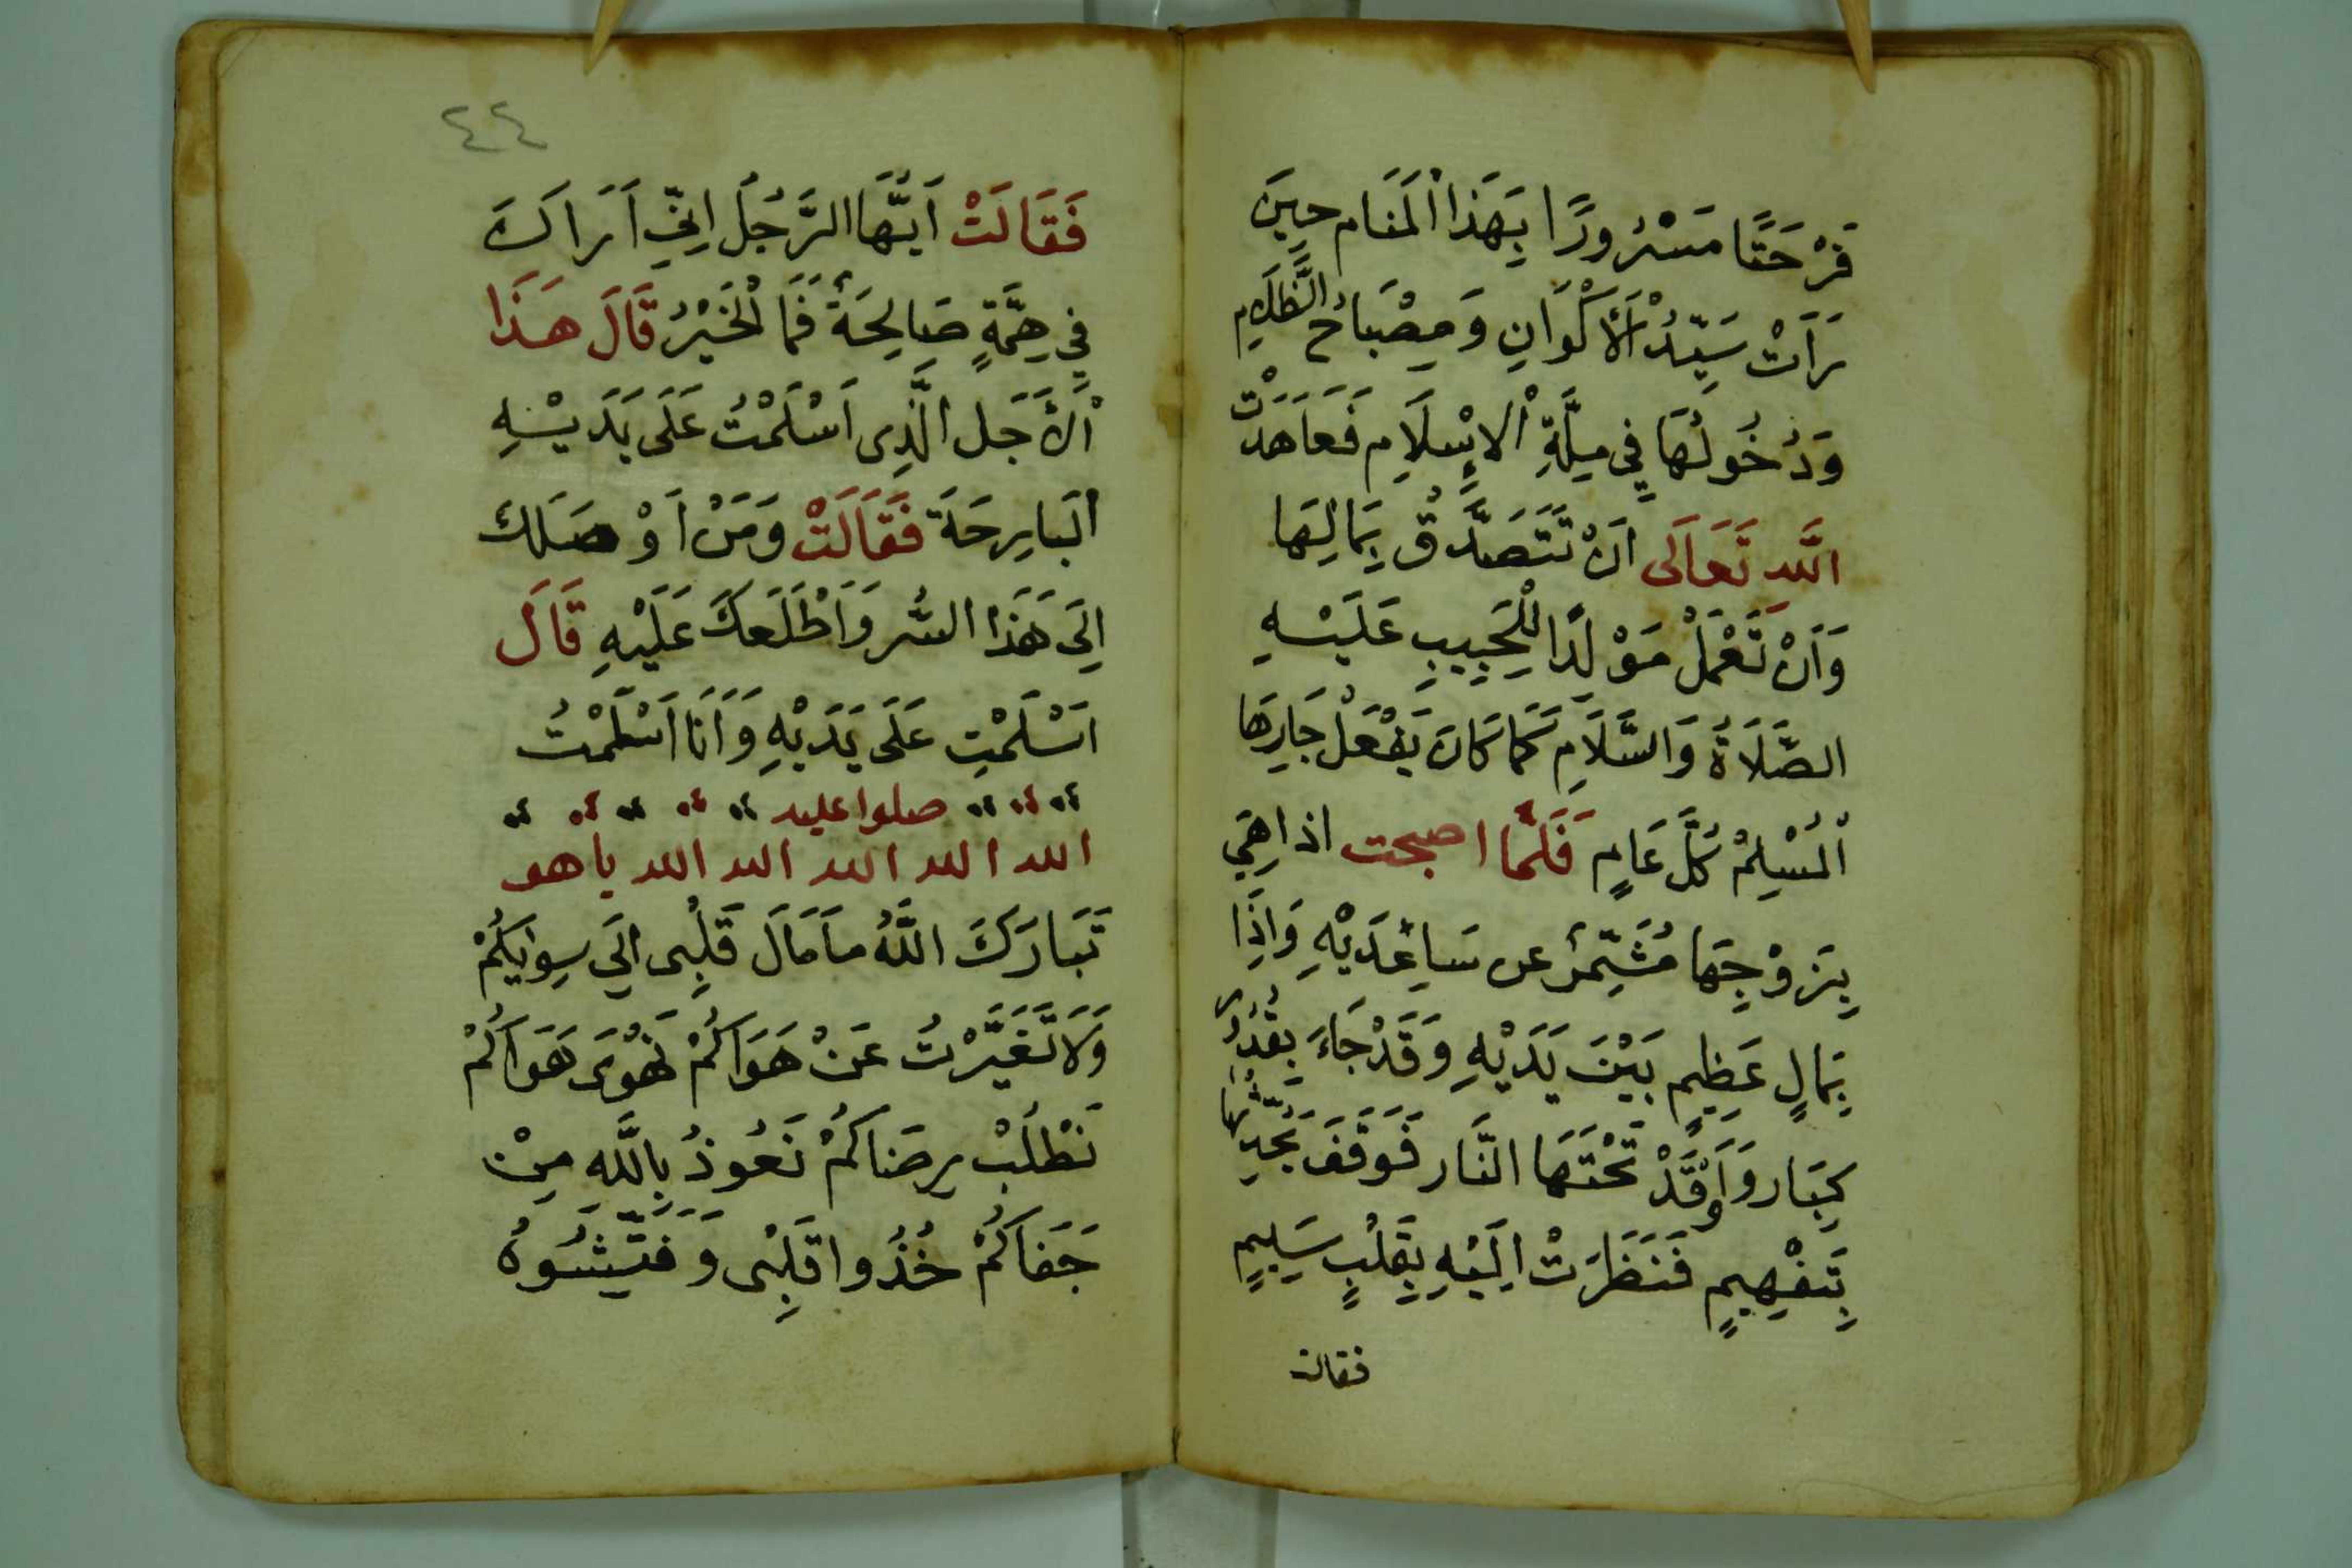 فَرْحَتًا مَسْرُورًا بِهَذَا الْمَنَام حِينَ
رَأَتْ سَيِّدُ الْأَكْوَانِ وَمِصْبَاحُ الظَّلَامِ
وَدُخُولُهَا فِي مِلَّةِ الْإِسْلَامِ فَعَاهَدَتْ
اللّه تَعَالَى اَنْ تَتَصَدَّقُ بِمَالِهَا
وَاَنْ تَعْمَلْ مَوْلَدًا لِلْحَبِيبِ عَلَيْهِ
الصَّلَاةُ وَالسَّلَامِ كَمَا كَانَ يَفْعَلْ جَارِهَا
الْمُسْلِمُ كُلَّ عَامٍ فَلَمَّا اصبحت اذا هِيَ
بِزَوْجِهَا مُشَمِّرْ عن سَاعِدَيْهِ وَاِذَا
بِمَالٍ عَظِيمٍ بَيْنَ يَدَيْهِ وَقَدْ جَاءَ بِقُدُرْ
كِبَار وَاَوْقَدْ تَحْتَهَا النَّار فَوَقَفَ
بِتَفْهِيمٍ فَنَظَرَتْ اِلَيْهِ بِقَلْبٍ سَلِيمٍ
فقالت
٤٤
فَقَالَتْ اَيُّهَا الرَّجُلُ اِنِّي اَرَاكَ
فِي هِمَّةٍ صَالِحَةٌ فَمَا الْخَبَرُ قَالَ هَذَا
الْأَجَل الَّذِى اَسْلَمْتُ عَلَى يَدَيْهِ
الْبَارِحَةَ فَقَالَتْ وَمَنْ اَوْصَلك
اِلَى هَذَا السُّر وَاَطْلَعَكَ عَلَيْهِ قَالَ
اسْلَمْتِ عَلَى يَدَيْهِ وَاَنَا اَسْلَمْتُ
صلوا عليه
الله الله الله الله الله ياهو
تَبَارَكَ اللَّهُ مَا مَالَ قَلْبِى الَى سِوَيكُمْ
وَلَا تَغَيَّرْتُ عَنْ هَوَاكُمْ نَهْوَى هَوَاكُمْ
نَطْلُبْ رِضَاكُمْ نَعُوذُ بِاللَّهِ مِنْ
جَفَاكُمْ خُذُوا قَلْبِى وَفَتِّشُوهُ